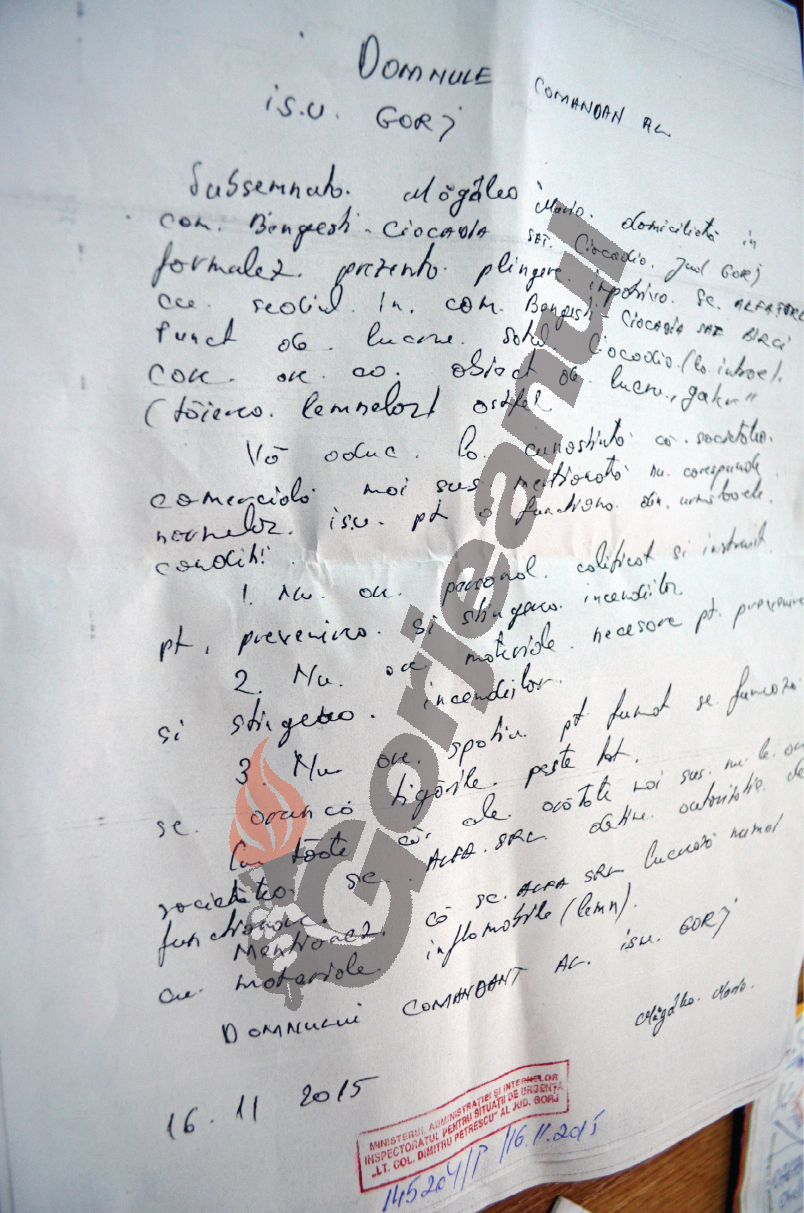 DOMNULE COMANDAN AL.
i.s.u. GORJ
Subsemnata. Măgălea Maria. domiciliată in
com. Bengesti - CIOCADIA SAT. Ciocadia. Jud GORJ
formulez. prezenta. plingere. impotriva. sc. ALFA
cu. sediul. in. com. Bengesti - CIOCADIA SAT BIRCI
Punct de. lucru. satul Ciocadia. (la intrare).
care. are. ca. obiect de lucru. "gater"
(tăierea. lemnelor) astfel
Vă aduc. la. cunostintă că. societatea.
comercială. mai sus mentionată nu. corespunde
normelor. isu. pt a functiona. din. urmatoarele.
conditii.
1. Nu. are. personal. calificat si instruit.
pt. prevenirea. si stingerea. incendiilor.
2. Nu. are materiale. necesare pt. prevenirea
si stingerea. incendiilor.
3. Nu are. spatiu. pt fumat se. fumează
se. aruncă tigările. peste tot.
Cu toate că. cele. arătate mai sus. nu le. are
societatea. sc. ALFA. SRL. detine. autoritatie. de
functionare.
Mentionez. că sc. ALFA SRL lucrează numai
cu materiale. inflamabile (lemn).
DOMNULUI COMANDANT AL. isu. GORJ
Măgălea. Maria.
16. 11 2015
MINISTERUL ADMINISTRAȚIEI ȘI INTERNELOR
INSPECTORATUL PENTRU SITUAȚII DE URGENȚĂ
„LT. COL. DIMITRU PETRESCU" AL JUD. GORJ
145204/P /16.11.2015
Gorjeanul